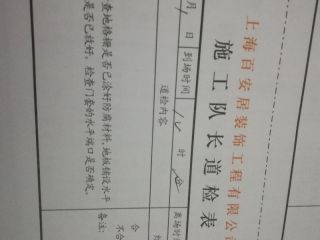 上海百安居装饰工程有限公
施工队长道检表
月 日 到场时间 时 离场时
道检内容
查地格栅是否已涂好防腐材料,地板铺设水平
是否已找好,检查门套的水平端口是否确定。
合
不合
备注: